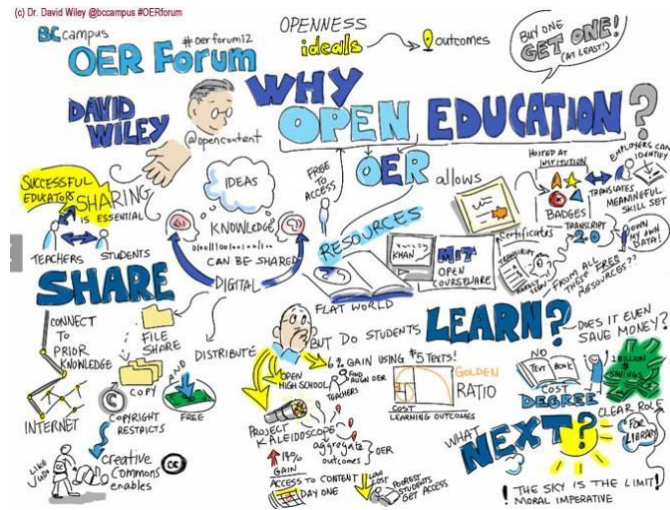 (c) Dr. David Wiley @bccampus #OERforum
BCcampus
#oerforum12
OER Forum
OPENNESS
ideals
outcomes
BUY ONE
GET ONE!
(AT LEAST!)
DAVID
WILEY
@opencontent
WHY
OPEN EDUCATION?
OER allows
FREE
TO
ACCESS
HOSTED AT
INSTITUTION
EMPLOYERS CAN
IDENTIFY
TRANSLATES
MEANINGFUL
SKILL SET
BADGES
TRANSCRIPT
2.0
certificates
OWN MY
OWN
DATA!
FROM ALL
THESE FREE
RESOURCES??
SUCCESSFUL
EDUCATORS
SHARING
IS ESSENTIAL
TEACHERS
STUDENTS
IDEAS
KNOWLEDGE
CAN BE SHARED
DIGITAL
RESOURCES
KHAN
MIT
OPEN
COURSEWARE
FLAT WORLD
SHARE
CONNECT
TO
PRIOR
KNOWLEDGE
INTERNET
FILE
SHARE
COPY
DISTRIBUTE
AND
FREE
COPYRIGHT
RESTRICTS
LIKE
creative
commons
enables
cc
BUT DO STUDENTS
LEARN?
6% GAIN USING $5 TEXTS!
OPEN
HIGH SCHOOL
TEACHERS
FIND
ALIGN OER
PROJECT
KALEIDOSCOPE
aggregate
outcomes
OER
GAIN
ACCESS TO CONTENT
DAY ONE
LOW
COST
POOREST
STUDENTS
GET ACCESS
GOLDEN
RATIO
COST
LEARNING OUTCOMES
DOES IT EVEN
SAVE MONEY?
NO
TEXT BOOK
COST
DEGREE
1 BILLION
$
SAVINGS
WHAT
NEXT?
CLEAR ROLE
FOR
LIBRARY
! THE SKY IS THE LIMIT!
MORAL IMPERATIVE